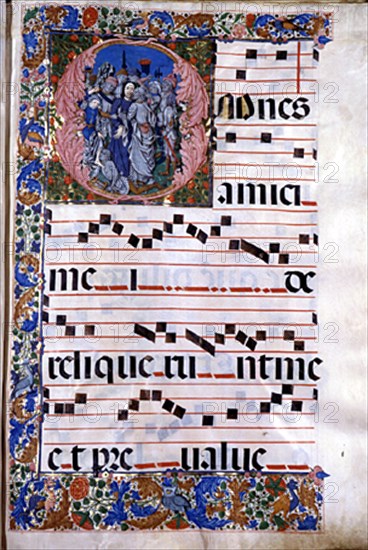 Omnes
amici
me i de
relique ru nt me
et pre ualue